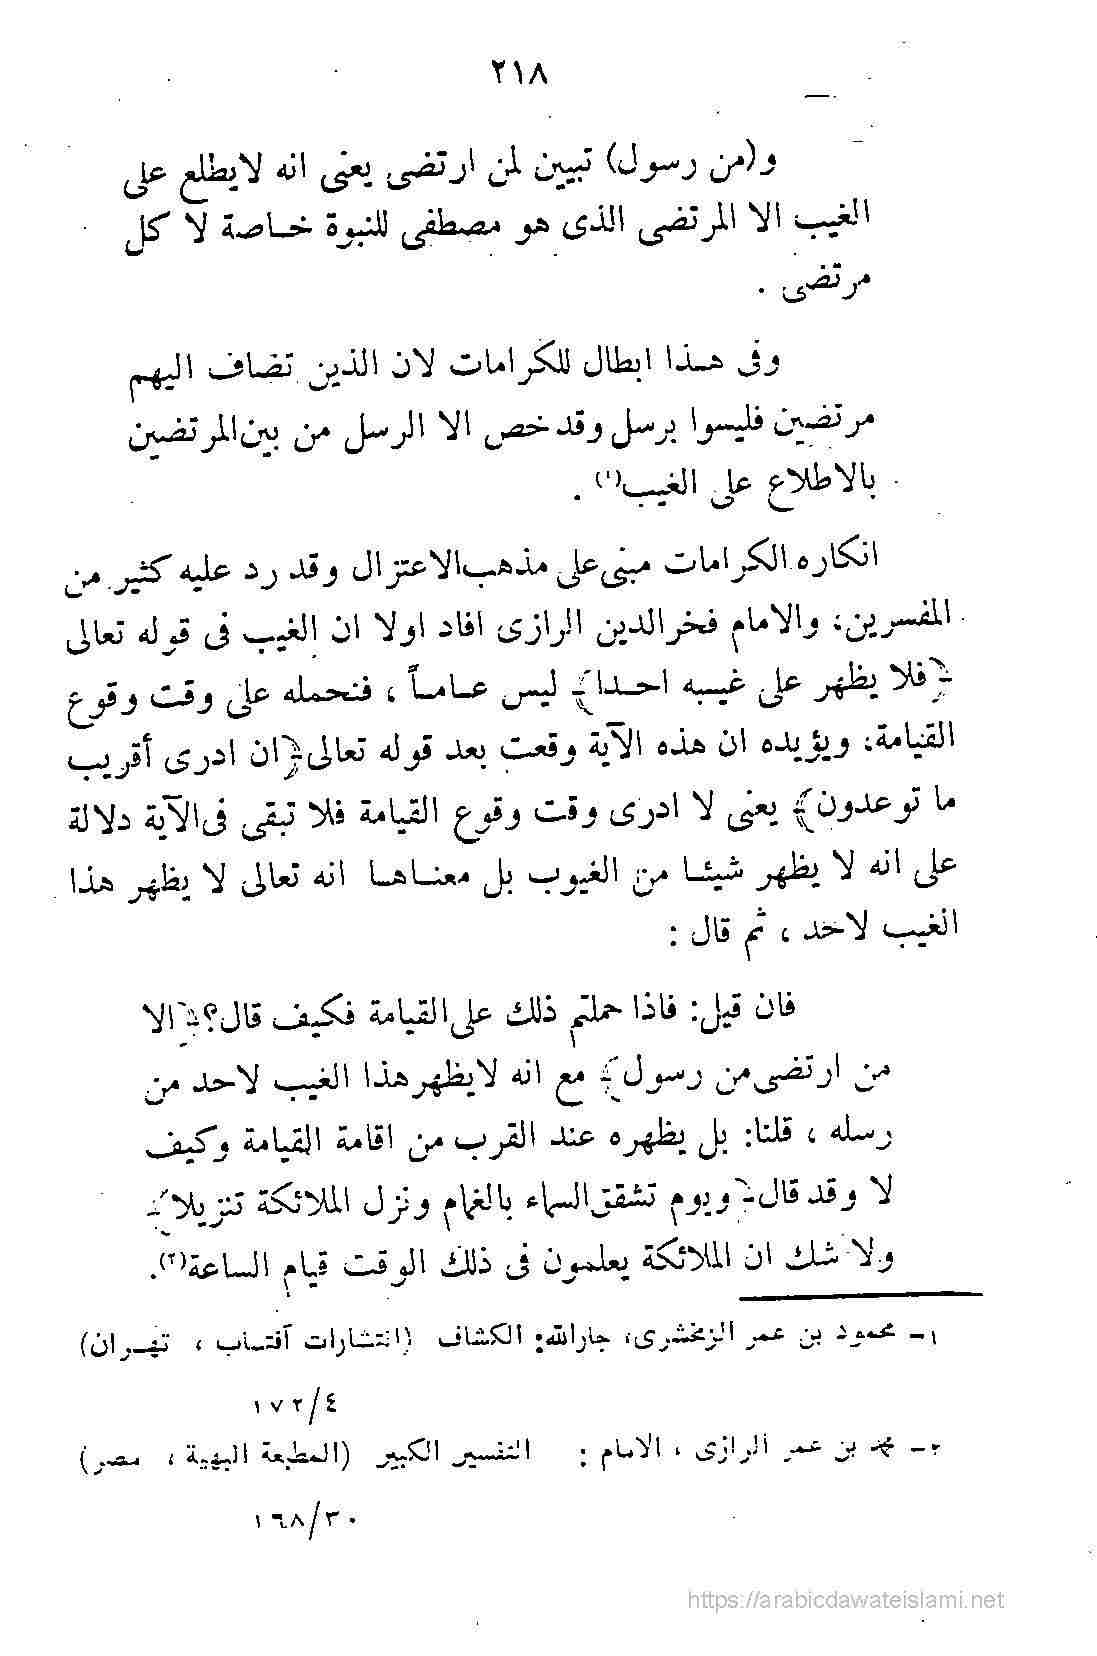 ٢١٨
و(من رسول) تبيين لمن ارتضى يعنى انه لايطلع على
الغيب الا المرتضى الذى هو مصطفى للنبوة خاصة لا كل
مرتضى .
وفى هذا ابطال للكرامات لان الذين تضاف اليهم
مرتضين فليسوا برسل وقد خص الا الرسل من بين المرتضين
بالاطلاع على الغيب(١) .
انكاره الكرامات مبنى على مذهب الاعتزال وقد رد عليه كثير من
المفسرين، والامام فخرالدين الرازى افاد اولا ان الغيب فى قوله تعالى
﴿فلا يظهر على غيبه احدا﴾ ليس عاماً ، فنحمله على وقت وقوع
القيامة، ويؤيده ان هذه الآية وقعت بعد قوله تعالى ﴿ان ادرى أقريب
ما توعدون﴾ يعنى لا ادرى وقت وقوع القيامة فلا تبقى فى الآية دلالة
على انه لا يظهر شيئا من الغيوب بل معناها انه تعالى لا يظهر هذا
الغيب لاحد ، ثم قال :
فان قيل: فاذا حملتم ذلك على القيامة فكيف قال؟ ﴿الا
من ارتضى من رسول﴾ مع انه لايظهر هذا الغيب لاحد من
رسله ، قلنا: بل يظهره عند القرب من اقامة القيامة وكيف
لا وقد قال ﴿ويوم تشقق السماء بالغمام ونزل الملائكة تنزيلا﴾
ولا شك ان الملائكة يعلمون فى ذلك الوقت قيام الساعة(٢).
١- محمود بن عمر الزمخشرى، جارالله: الكشاف (انتشارات آفتاب ، تهران)
١٧٢/٤
٢- محمد بن عمر الرازى ، الامام : التفسير الكبير (المطبعة البهية ، مصر)
١٦٨/٣٠
https://arabicdawateislami.net